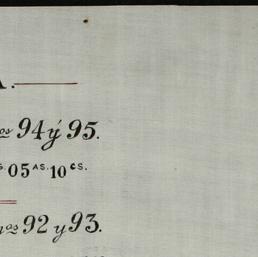 A.
nos 94 ý 95.
05 AS. 10 CS.
nos 92 y 93.